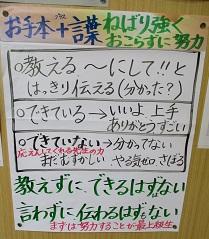 お手本+プラス言葉 ねばり強く
おこらずに努力
○教える 〜にして!!と
はっきり伝える(分かった?)
○できている→いいよ 上手
ありがとうすごい
○できていない→分かってない
応えんしてくれる先生の力
まだむずかしい やる気ゼロ、さぼる
教えずに、できるはずない
言わずに 伝わるはずもない
まずは努力することが最上級生